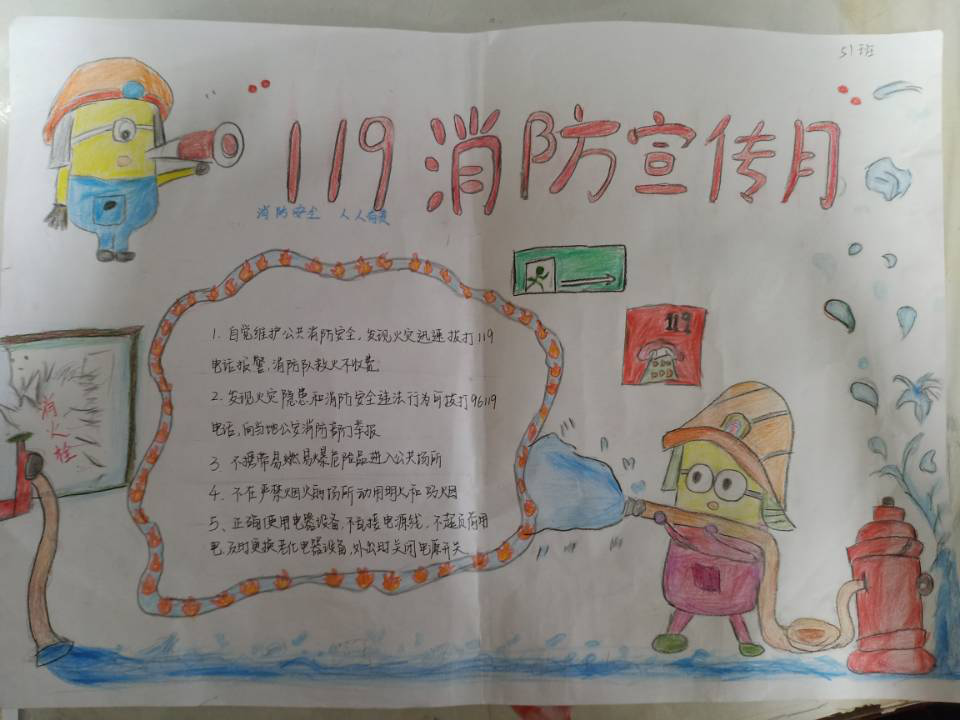 51班
119消防宣传月
消防安全 人人有责
1. 自觉维护公共消防安全,发现火灾迅速拔打119
电话报警,消防队救火不收费
2. 发现火灾隐患和消防安全违法行为可拔打96119
电话,向当地公安消防部门举报
3. 不携带易燃易爆危险品进入公共场所
4. 不在严禁烟火的场所动用明火和吸烟
5、正确使用电器设备,不乱接电源线,不超负荷用
电,及时更换老化电器设备,外出时关闭电源开关
119
消火栓